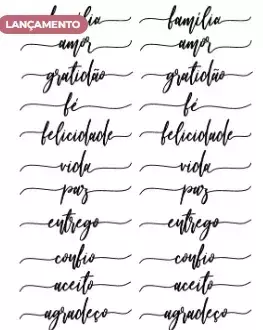 LANÇAMENTO
família família
amor amor
gratidão gratidão
fé fé
felicidade felicidade
vida vida
paz paz
entrego entrego
confio confio
aceito aceito
agradeço agradeço